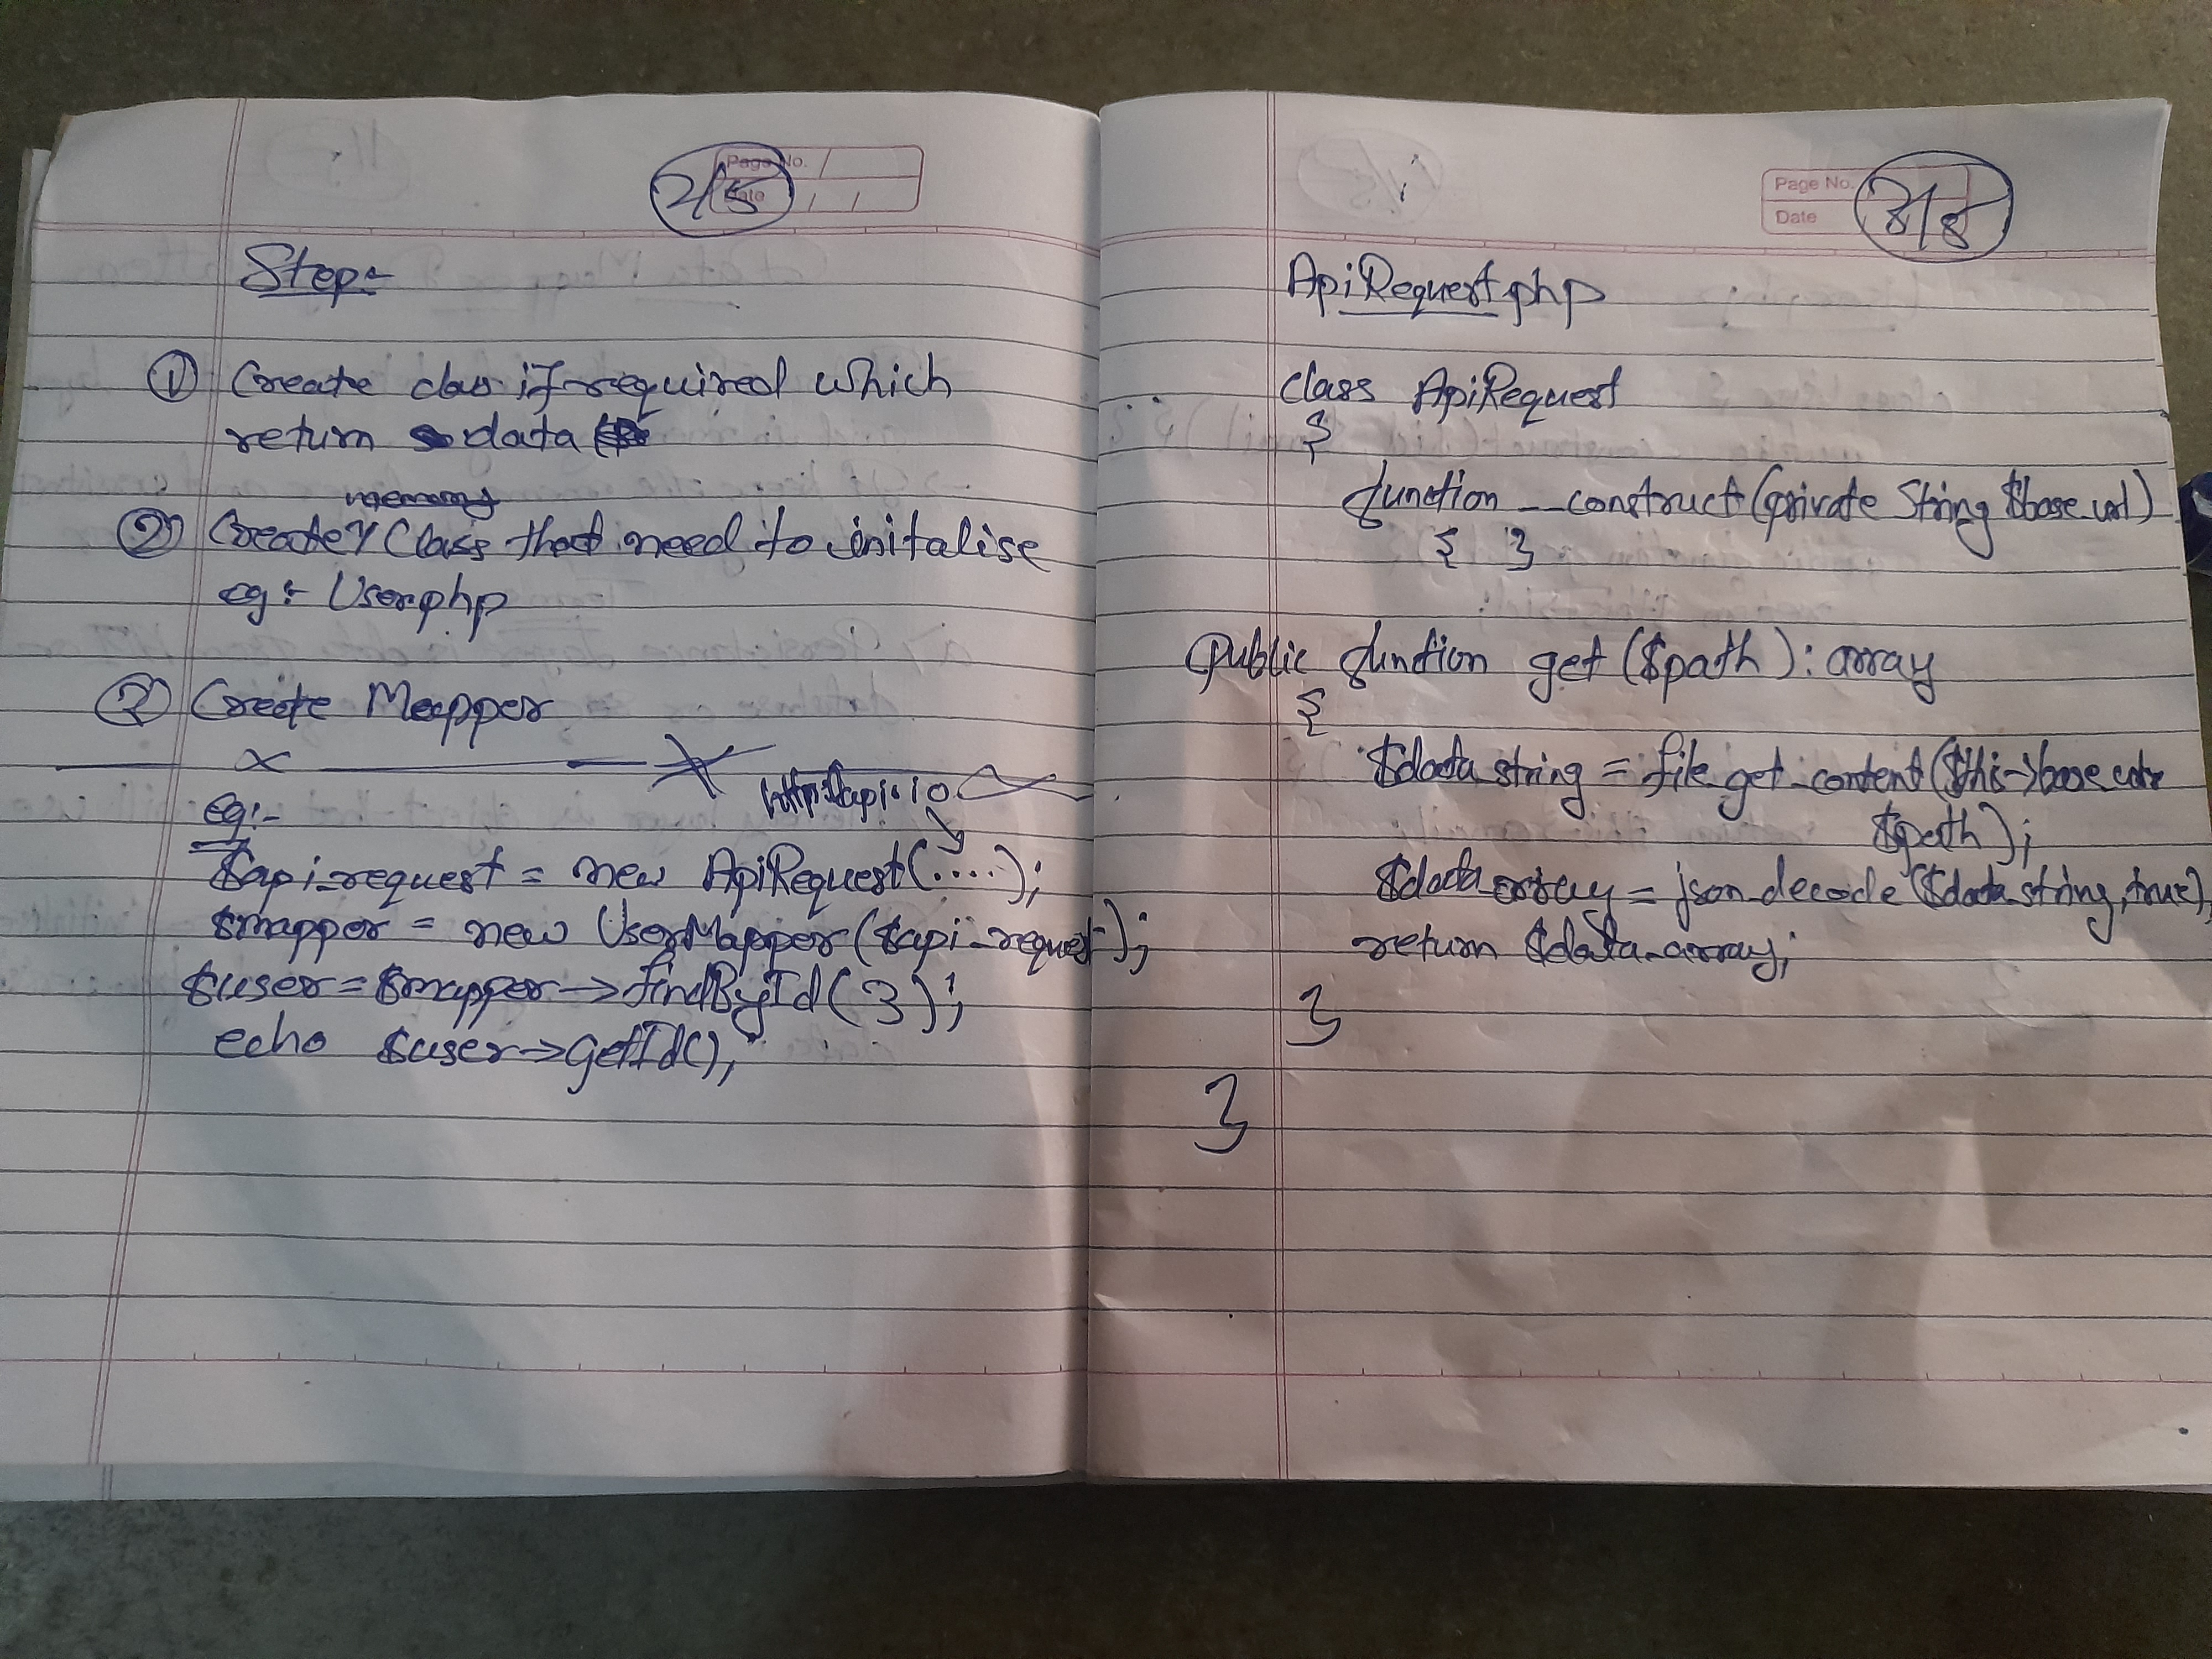 Page No.
Date
Step:-
① Create class if required which
return data
② Create Class that need to initalise
eg:- User.php
③ Create Mapper
x
eg:-
$api_request = new ApiRequest(....);
$mapper = new UserMapper($api_request);
$user = $mapper->findById(3);
echo $user->getId();
Page No.
Date
ApiRequest.php
class ApiRequest
{
function __construct(private String $base_url)
{ }
public function get($path): array
{
$data_string = file_get_content($this->base_url.
$path);
$data_array = json_decode($data_string, true);
return $data_array;
}
}